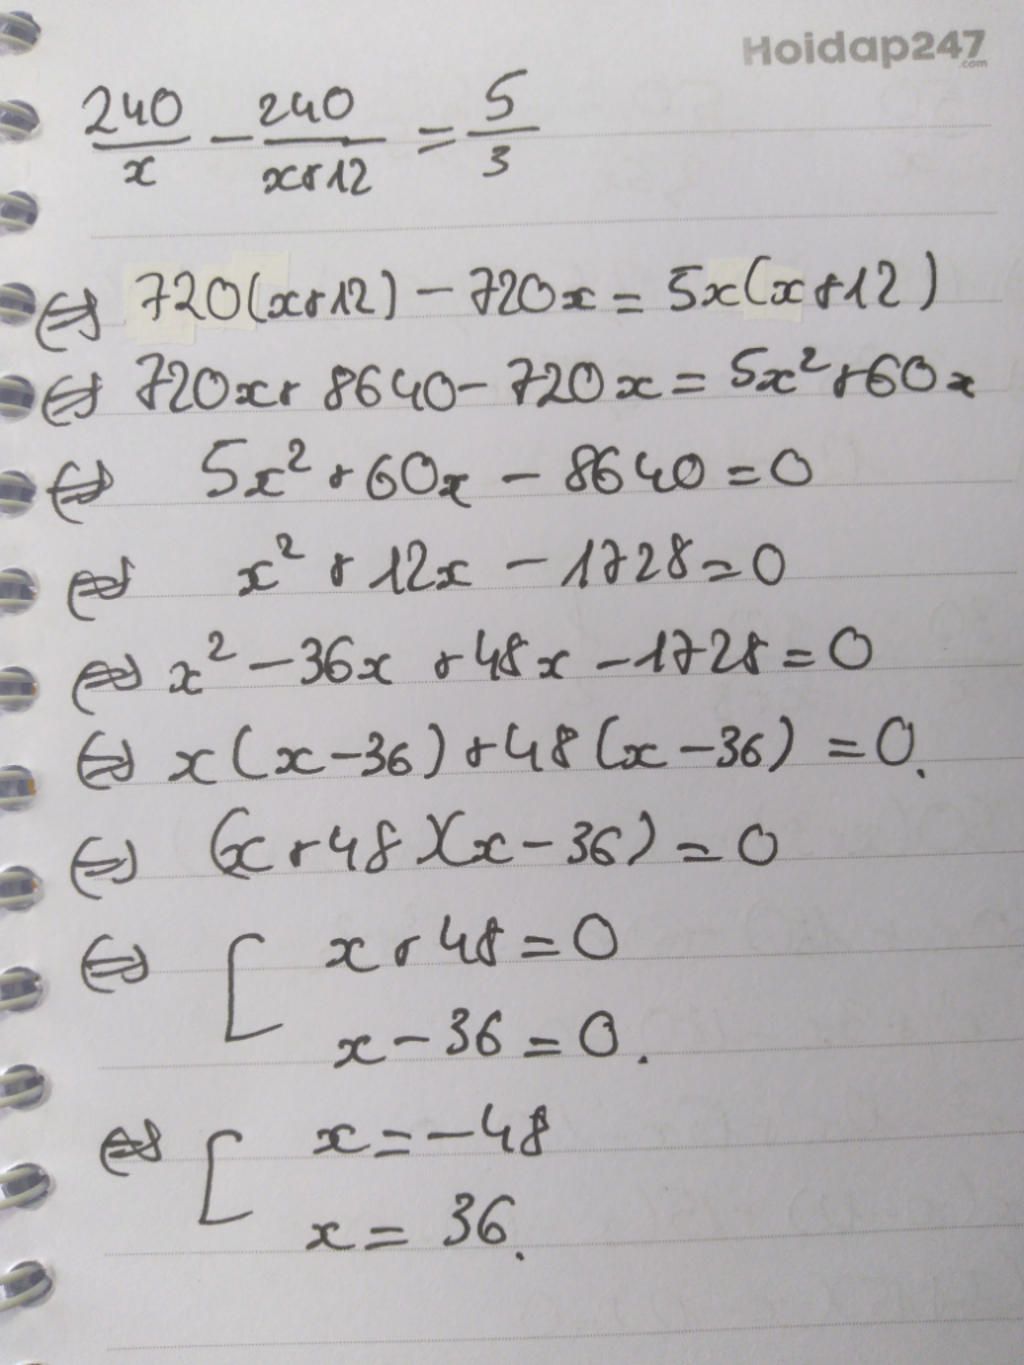 Hoidap247
.com
240/x - 240/x+12 = 5/3
⇔ 720(x+12) - 720x = 5x(x+12)
⇔ 720x+ 8640 - 720x = 5x² + 60x
⇔ 5x² + 60x - 8640 = 0
⇔ x² + 12x - 1728 = 0
⇔ x² - 36x + 48x - 1728 = 0
⇔ x(x-36) + 48(x-36) = 0.
⇔ (x+48)(x-36) = 0
⇔ [ x+48 = 0
x - 36 = 0.
⇔ [ x = -48
x = 36.